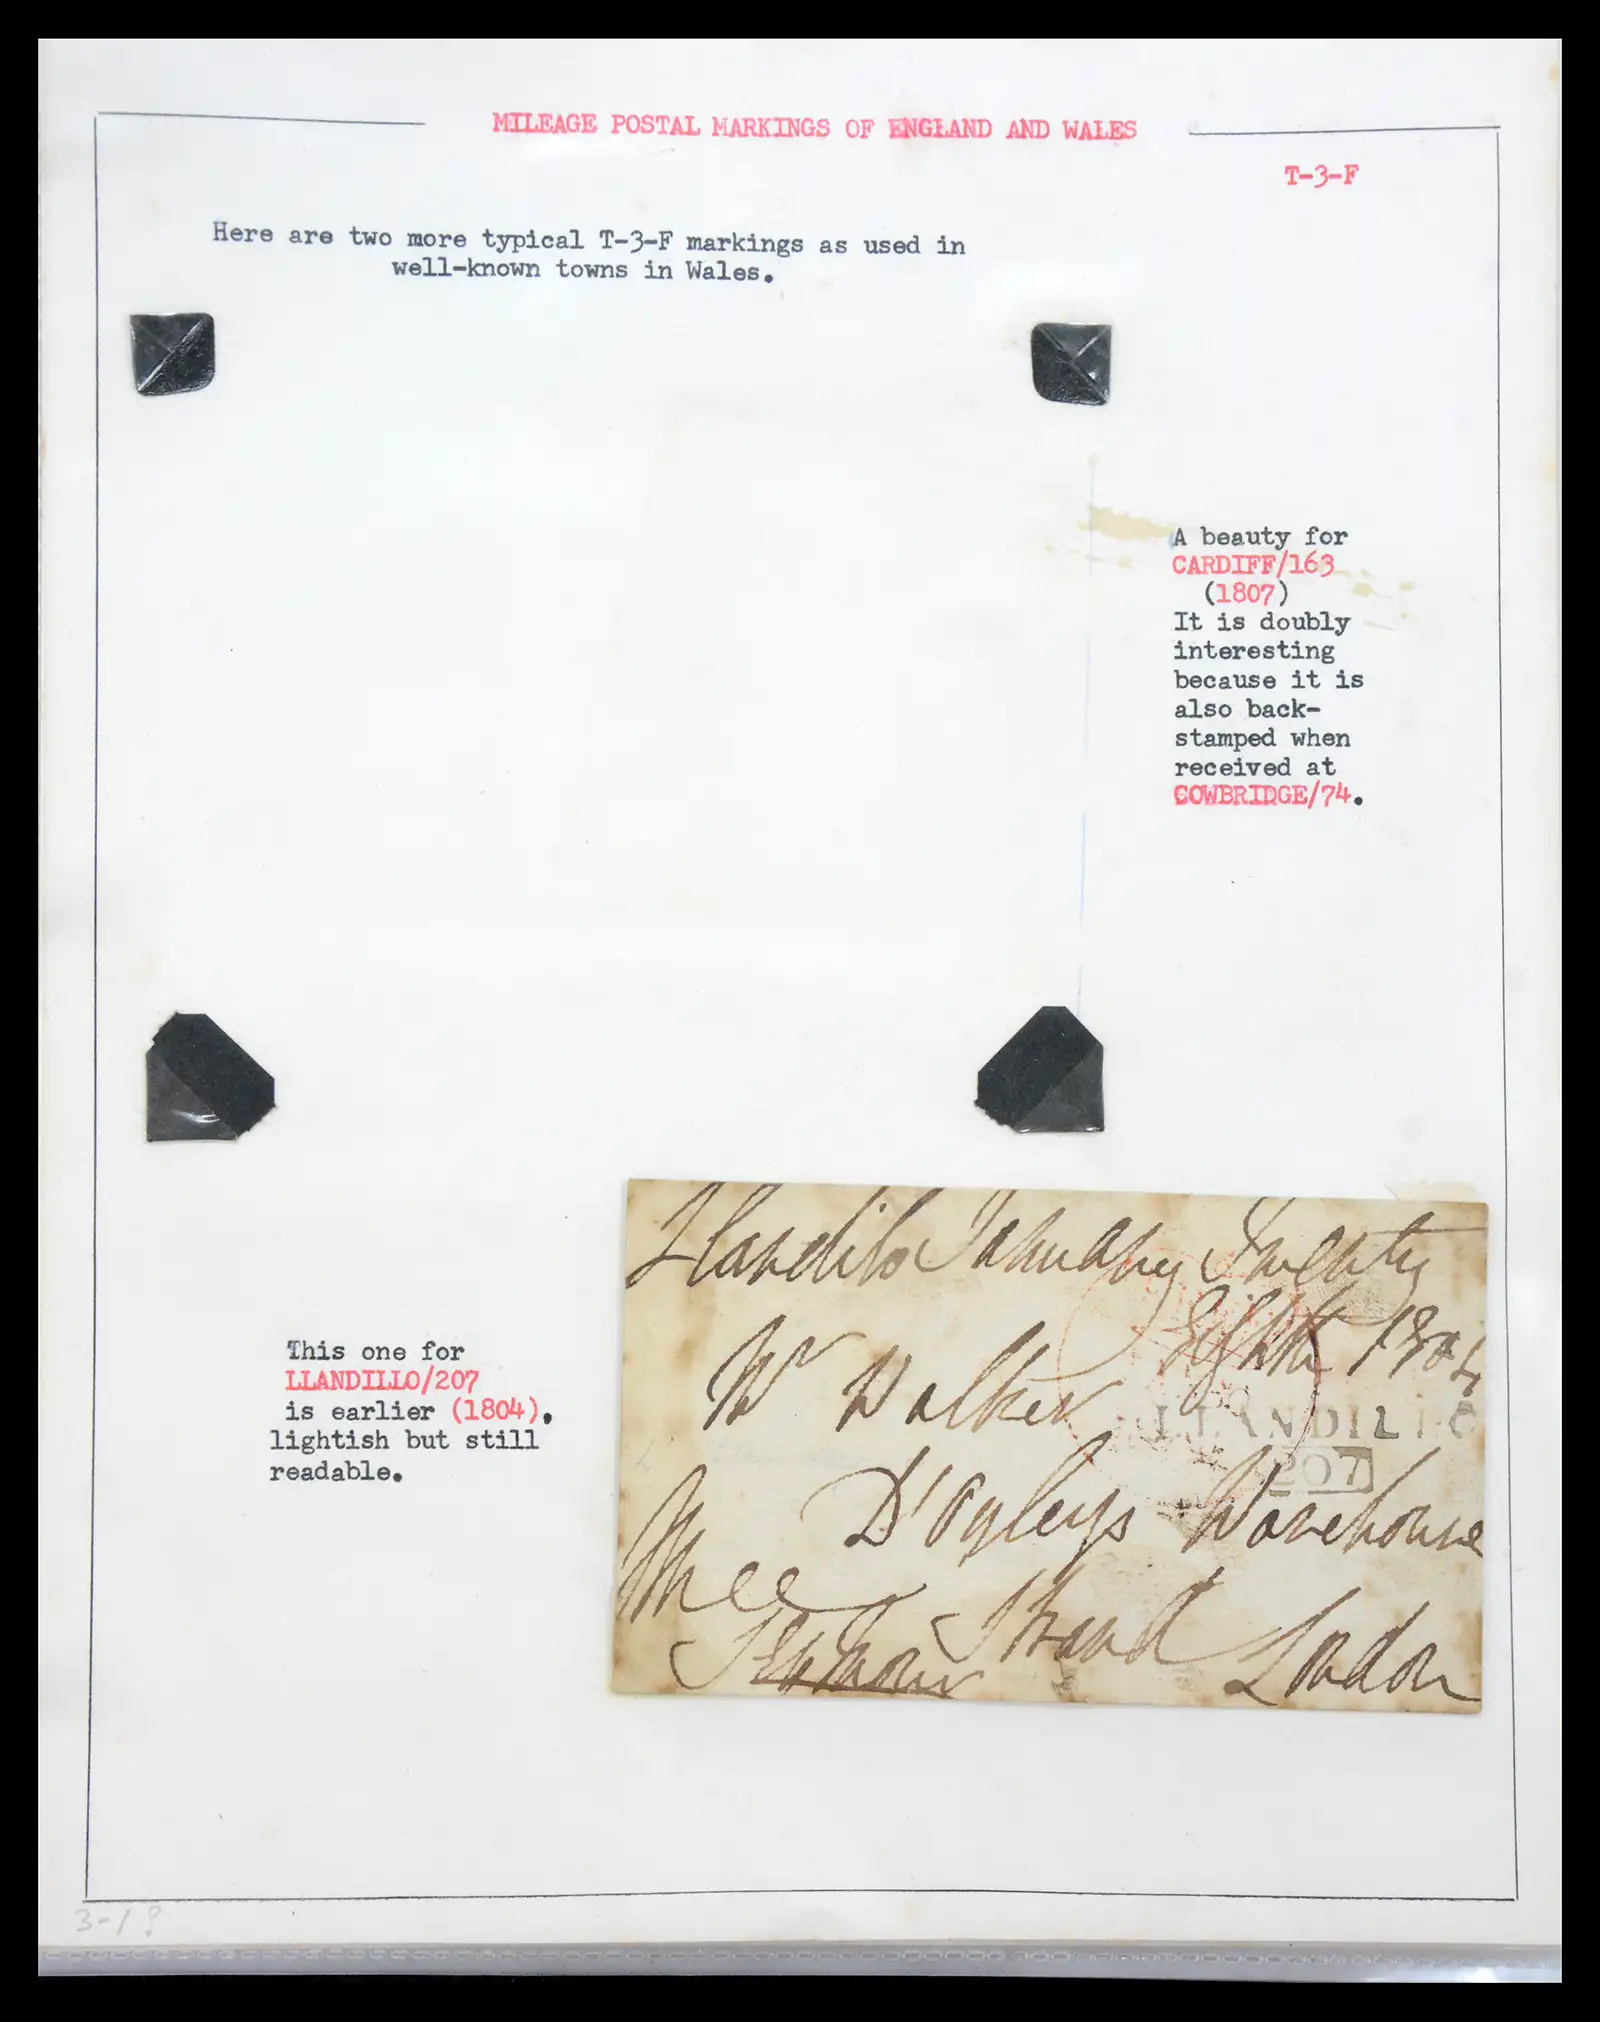 MILEAGE POSTAL MARKINGS OF ENGLAND AND WALES
T-3-F
Here are two more typical T-3-F markings as used in
well-known towns in Wales.
A beauty for
CARDIFF/163
(1807)
It is doubly
interesting
because it is
also back-
stamped when
received at
COWBRIDGE/74.
This one for
LLANDILLO/207
is earlier (1804).
lightish but still
readable.
Llandilo January Twenty
Eighth 1804
Mr Walker
LLANDILLO
207
D'Ogleys Warehouse
Strand London
3-18